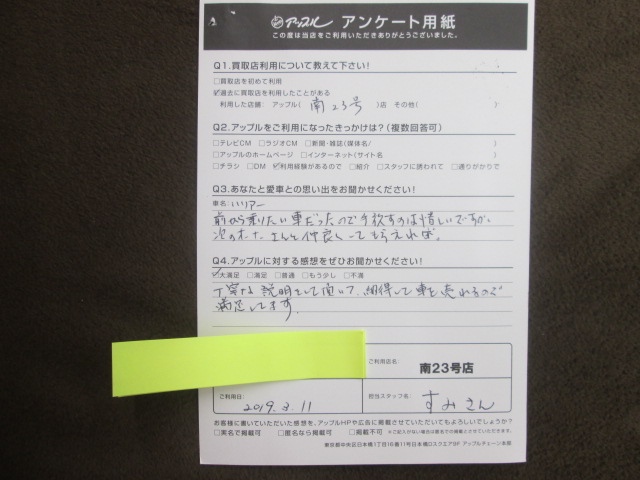 アップル アンケート用紙
この度は当店をご利用いただきありがとうございました。
Q1.買取店利用について教えて下さい！
□買取店を初めて利用
☑過去に買取店を利用したことがある
利用した店舗： アップル（ 南23号 ）店 その他（ ）
Q2.アップルをご利用になったきっかけは？（複数回答可）
□テレビCM □ラジオCM □新聞・雑誌（媒体名/ ）
□アップルのホームページ □インターネット（サイト名 ）
□チラシ □DM ☑利用経験があるので □紹介 □スタッフに誘われて □通りがかりで
Q3.あなたと愛車との思い出をお聞かせください！
車名：ハリアー
前から乗りたい車だったので手放すのは惜しいですが、
次のオーナーさんと仲良くしてもらえれば。
Q4.アップルに対する感想をぜひお聞かせください！
☑大満足 □満足 □普通 □もう少し □不満
丁寧な説明をして頂いて、納得して車を売れるので
満足してます。
ご利用店名：
南23号店
ご利用日：
2019.3.11
担当スタッフ名：
すみさん
お客様に書いていただいた感想を、アップルHPや広告に掲載させていただいてもよろしいでしょうか？
□実名で掲載可 □匿名なら掲載可 □掲載不可 ※ご記入がない場合は匿名での掲載とさせていただきます。
東京都中央区日本橋1丁目16番11号日本橋Dスクエア8F アップルチェーン本部